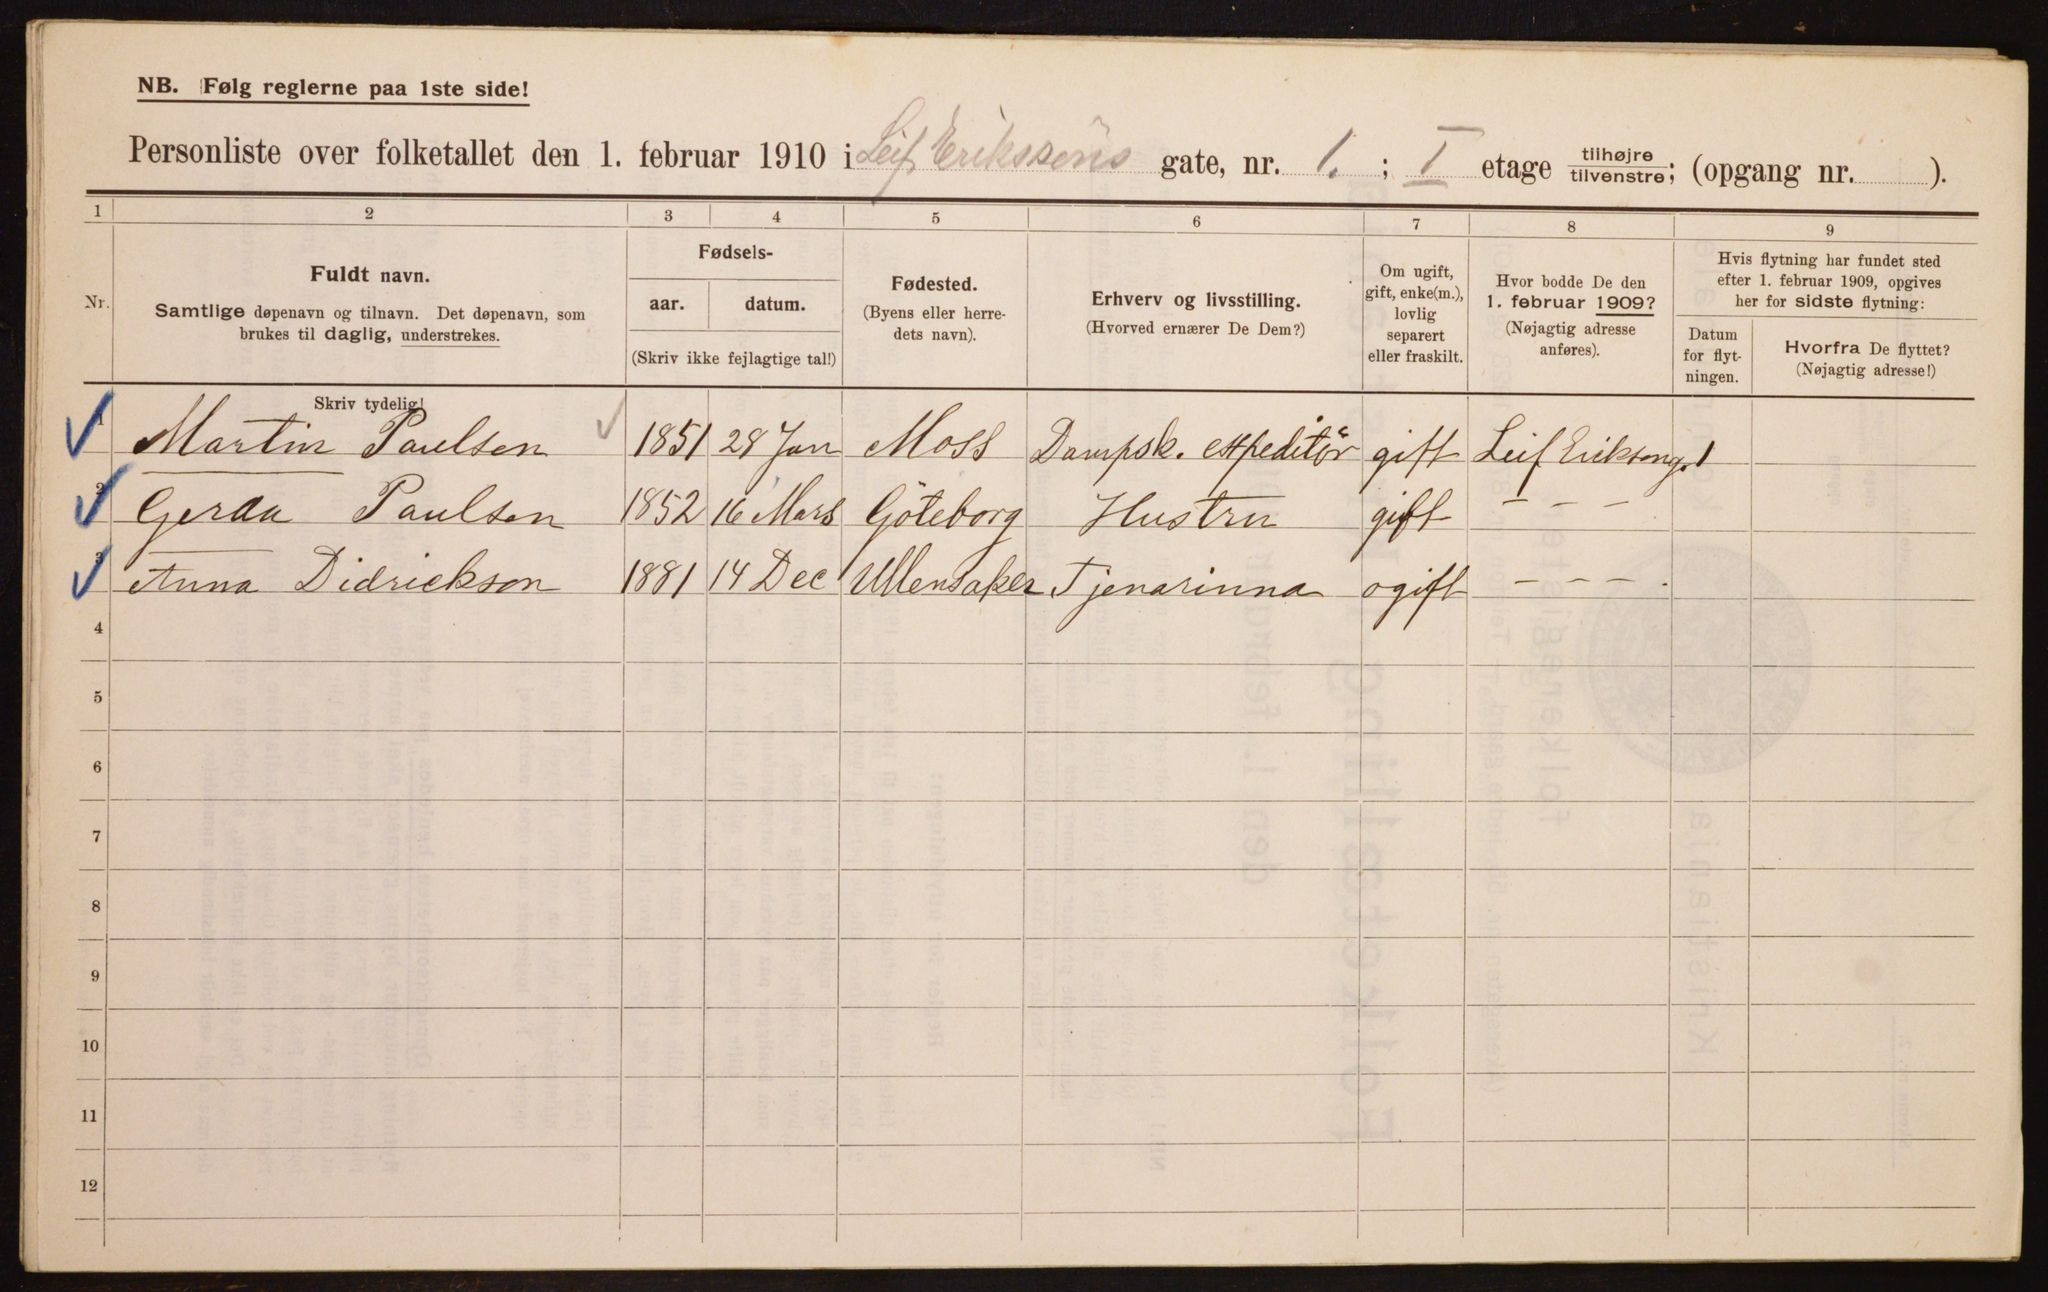 NB. Følg reglerne paa 1ste side!
Personliste over folketallet den 1. februar 1910 i Leif Erikssöns gate, nr. 1. ; I etage tilhøjre tilvenstre; (opgang nr. ).
1 2 3 4 5 6 7 8 9
Nr.
Fuldt navn.
Samtlige døpenavn og tilnavn. Det døpenavn, som
brukes til daglig, understrekes.
Fødsels-
aar. datum.
(Skriv ikke fejlagtige tal!)
Fødested.
(Byens eller herre-
dets navn).
Erhverv og livsstilling.
(Hvorved ernærer De Dem?)
Om ugift,
gift, enke(m.),
lovlig
separert
eller fraskilt.
Hvor bodde De den
1. februar 1909?
(Nøjagtig adresse
anføres).
Hvis flytning har fundet sted
efter 1. februar 1909, opgives
her for sidste flytning:
Datum
for flyt-
ningen.
Hvorfra De flyttet?
(Nøjagtig adresse!)
Skriv tydelig!
1 Martin Paulsen 1851 28 Jan Moss Dampsk. expeditör gift Leif Eriksong. 1
2 Gerda Paulsen 1852 16 Mars Göteborg Hustru gift - - -
3 Anna Didrickson 1881 14 Dec Ullensaker Tjenarinna ogift - - -.
4
5
6
7
8
9
10
11
12